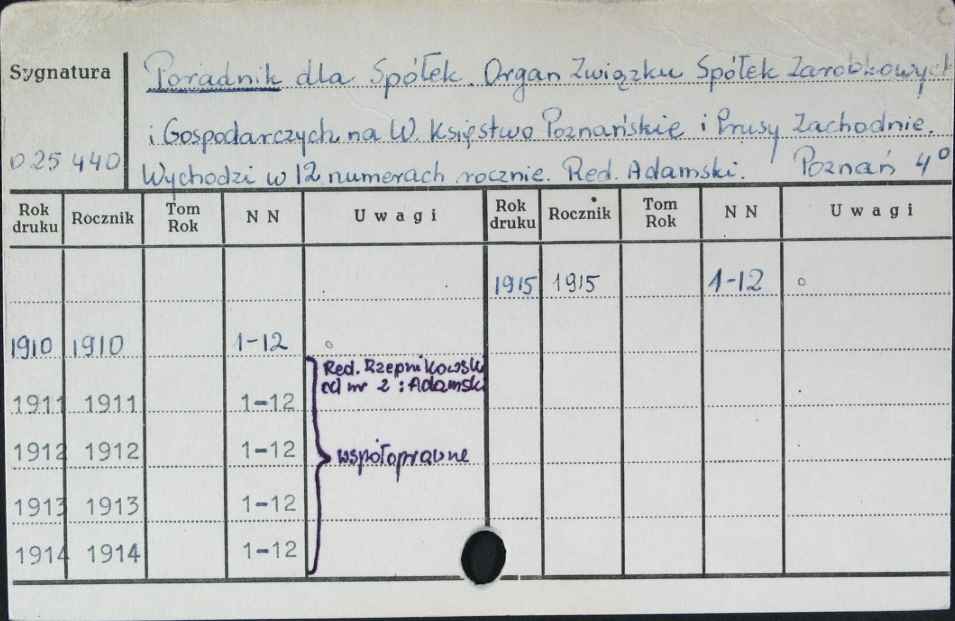 Sygnatura
Poradnik dla Spółek. Organ Związku Spółek Zarobkowych
i Gospodarczych na W. Księstwo Poznańskie i Prusy Zachodnie.
025 440
Wychodzi w 12 numerach rocznie. Red. Adamski. Poznań 4°
Rok druku Rocznik Tom Rok N N Uwagi Rok druku Rocznik Tom Rok N N Uwagi
1915 1915 1-12
1910 1910 1-12
Red. Rzepnikowski
od nr 2 : Adamski
1911 1911 1-12
1912 1912 1-12 współoprawne
1913 1913 1-12
1914 1914 1-12